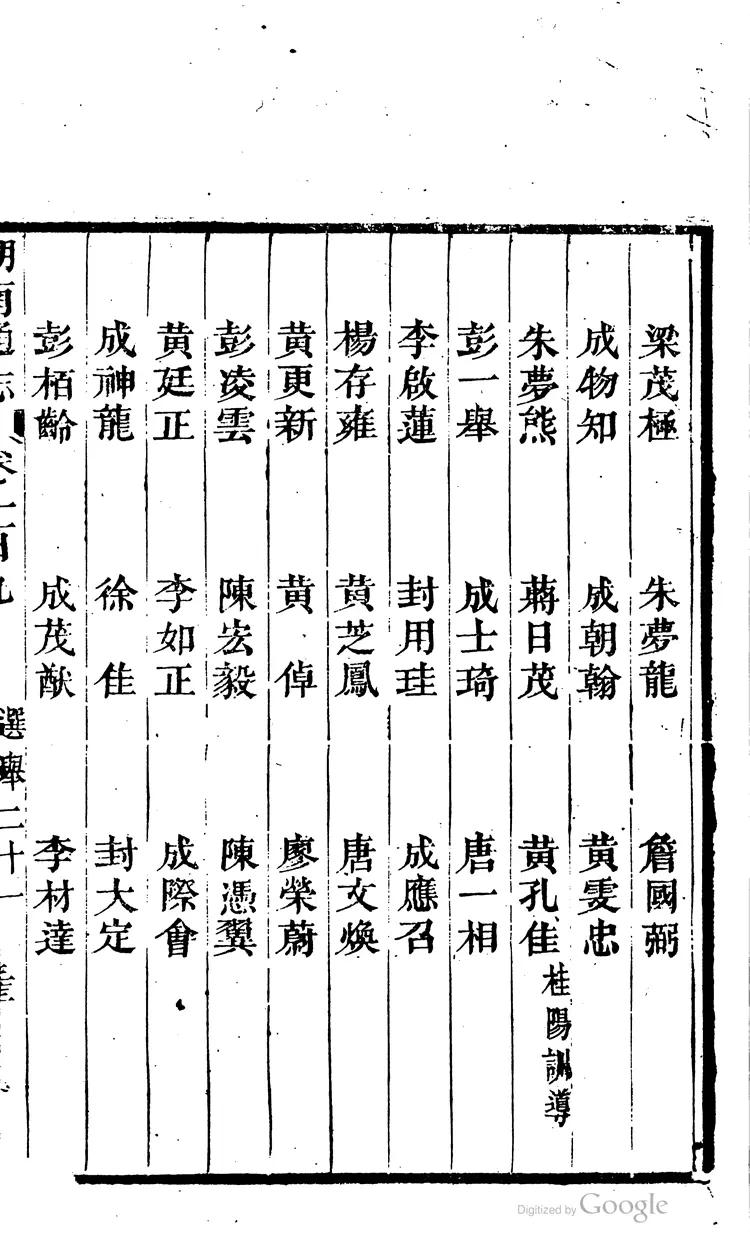 梁茂極 朱夢龍 詹國弼
成物知 成朝翰 黃雯忠
朱夢熊 蔣日茂 黃孔佳 桂陽訓導
彭一舉 成士琦 唐一相
李啟蓮 封用珪 成應召
楊存雍 黃芝鳳 唐文煥
黃更新 黃倬 廖榮蔚
彭凌雲 陳宏毅 陳憑翼
黃廷正 李如正 成際會
成神龍 徐佳 封大定
彭栢齡 成茂猷 李材達
湖南通志 卷一百九 選舉二十一
Digitized by Google